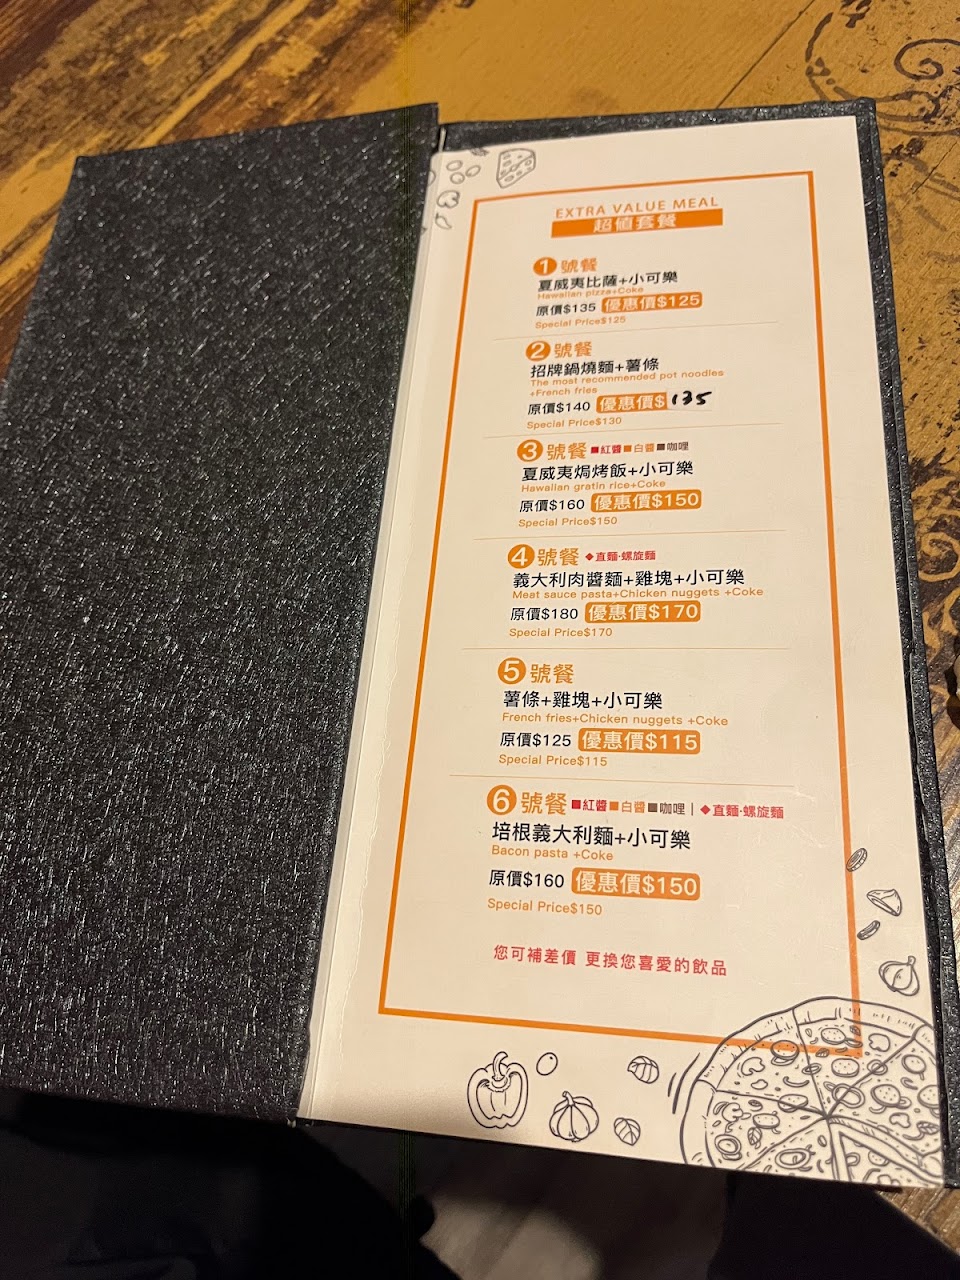 EXTRA VALUE MEAL
超值套餐
1 號餐
夏威夷比薩+小可樂
Hawaiian pizza+Coke
原價$135 優惠價$125
Special Price$125
2 號餐
招牌鍋燒麵+薯條
The most recommended pot noodles
+French fries
原價$140 優惠價$135
Special Price$130
3 號餐 ■紅醬■白醬■咖哩
夏威夷焗烤飯+小可樂
Hawaiian gratin rice+Coke
原價$160 優惠價$150
Special Price$150
4 號餐 ◆直麵·螺旋麵
義大利肉醬麵+雞塊+小可樂
Meat sauce pasta+Chicken nuggets +Coke
原價$180 優惠價$170
Special Price$170
5 號餐
薯條+雞塊+小可樂
French fries+Chicken nuggets +Coke
原價$125 優惠價$115
Special Price$115
6 號餐 ■紅醬■白醬■咖哩｜◆直麵·螺旋麵
培根義大利麵+小可樂
Bacon pasta +Coke
原價$160 優惠價$150
Special Price$150
您可補差價 更換您喜愛的飲品